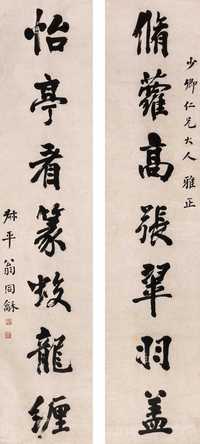 少卿仁兄大人雅正
脩蘿高張翠羽蓋
怡亭看篆蛟龍纏
叔平翁同龢